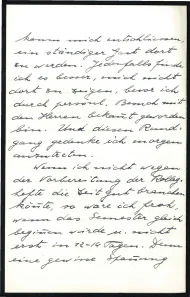 kann mich entschliessen,
ein ständiger Gast dort
zu werden. Jedenfalls finde
ich es besser, mich nicht
dort zu zeigen, bevor ich
durch persönl. Besuch mit
den Herren bekannt geworden
bin. Und diesen Rund-
gang gedenke ich morgen
anzutreten.
Wenn ich nicht wegen
der Vorbereitung der Kolleg-
hefte die Zeit gut brauchen
könnte, so wäre ich froh,
wenn das Semester gleich
beginnen würde u. nicht
erst in 12-14 Tagen. Denn
eine gewisse Spannung